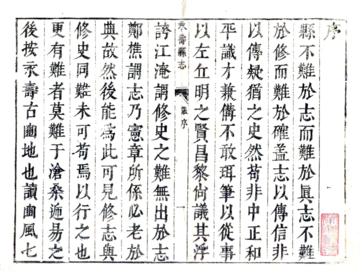 序
縣不難於志而難於眞志不難
於修而難於確盖志以傳信非
以傳疑猶之史然苟非中正和
平識才兼備不敢珥筆以從事
以左丘明之賢昌黎尚議其浮
永壽縣志
舊序
誇江淹謂修史之難無出於志
鄭樵謂志乃憲章所係必老於
典故然後能爲此可見修志與
修史同難未可苟焉以行之也
更有難者莫難于滄桑遞易之
後按永壽古豳地也讀豳風七